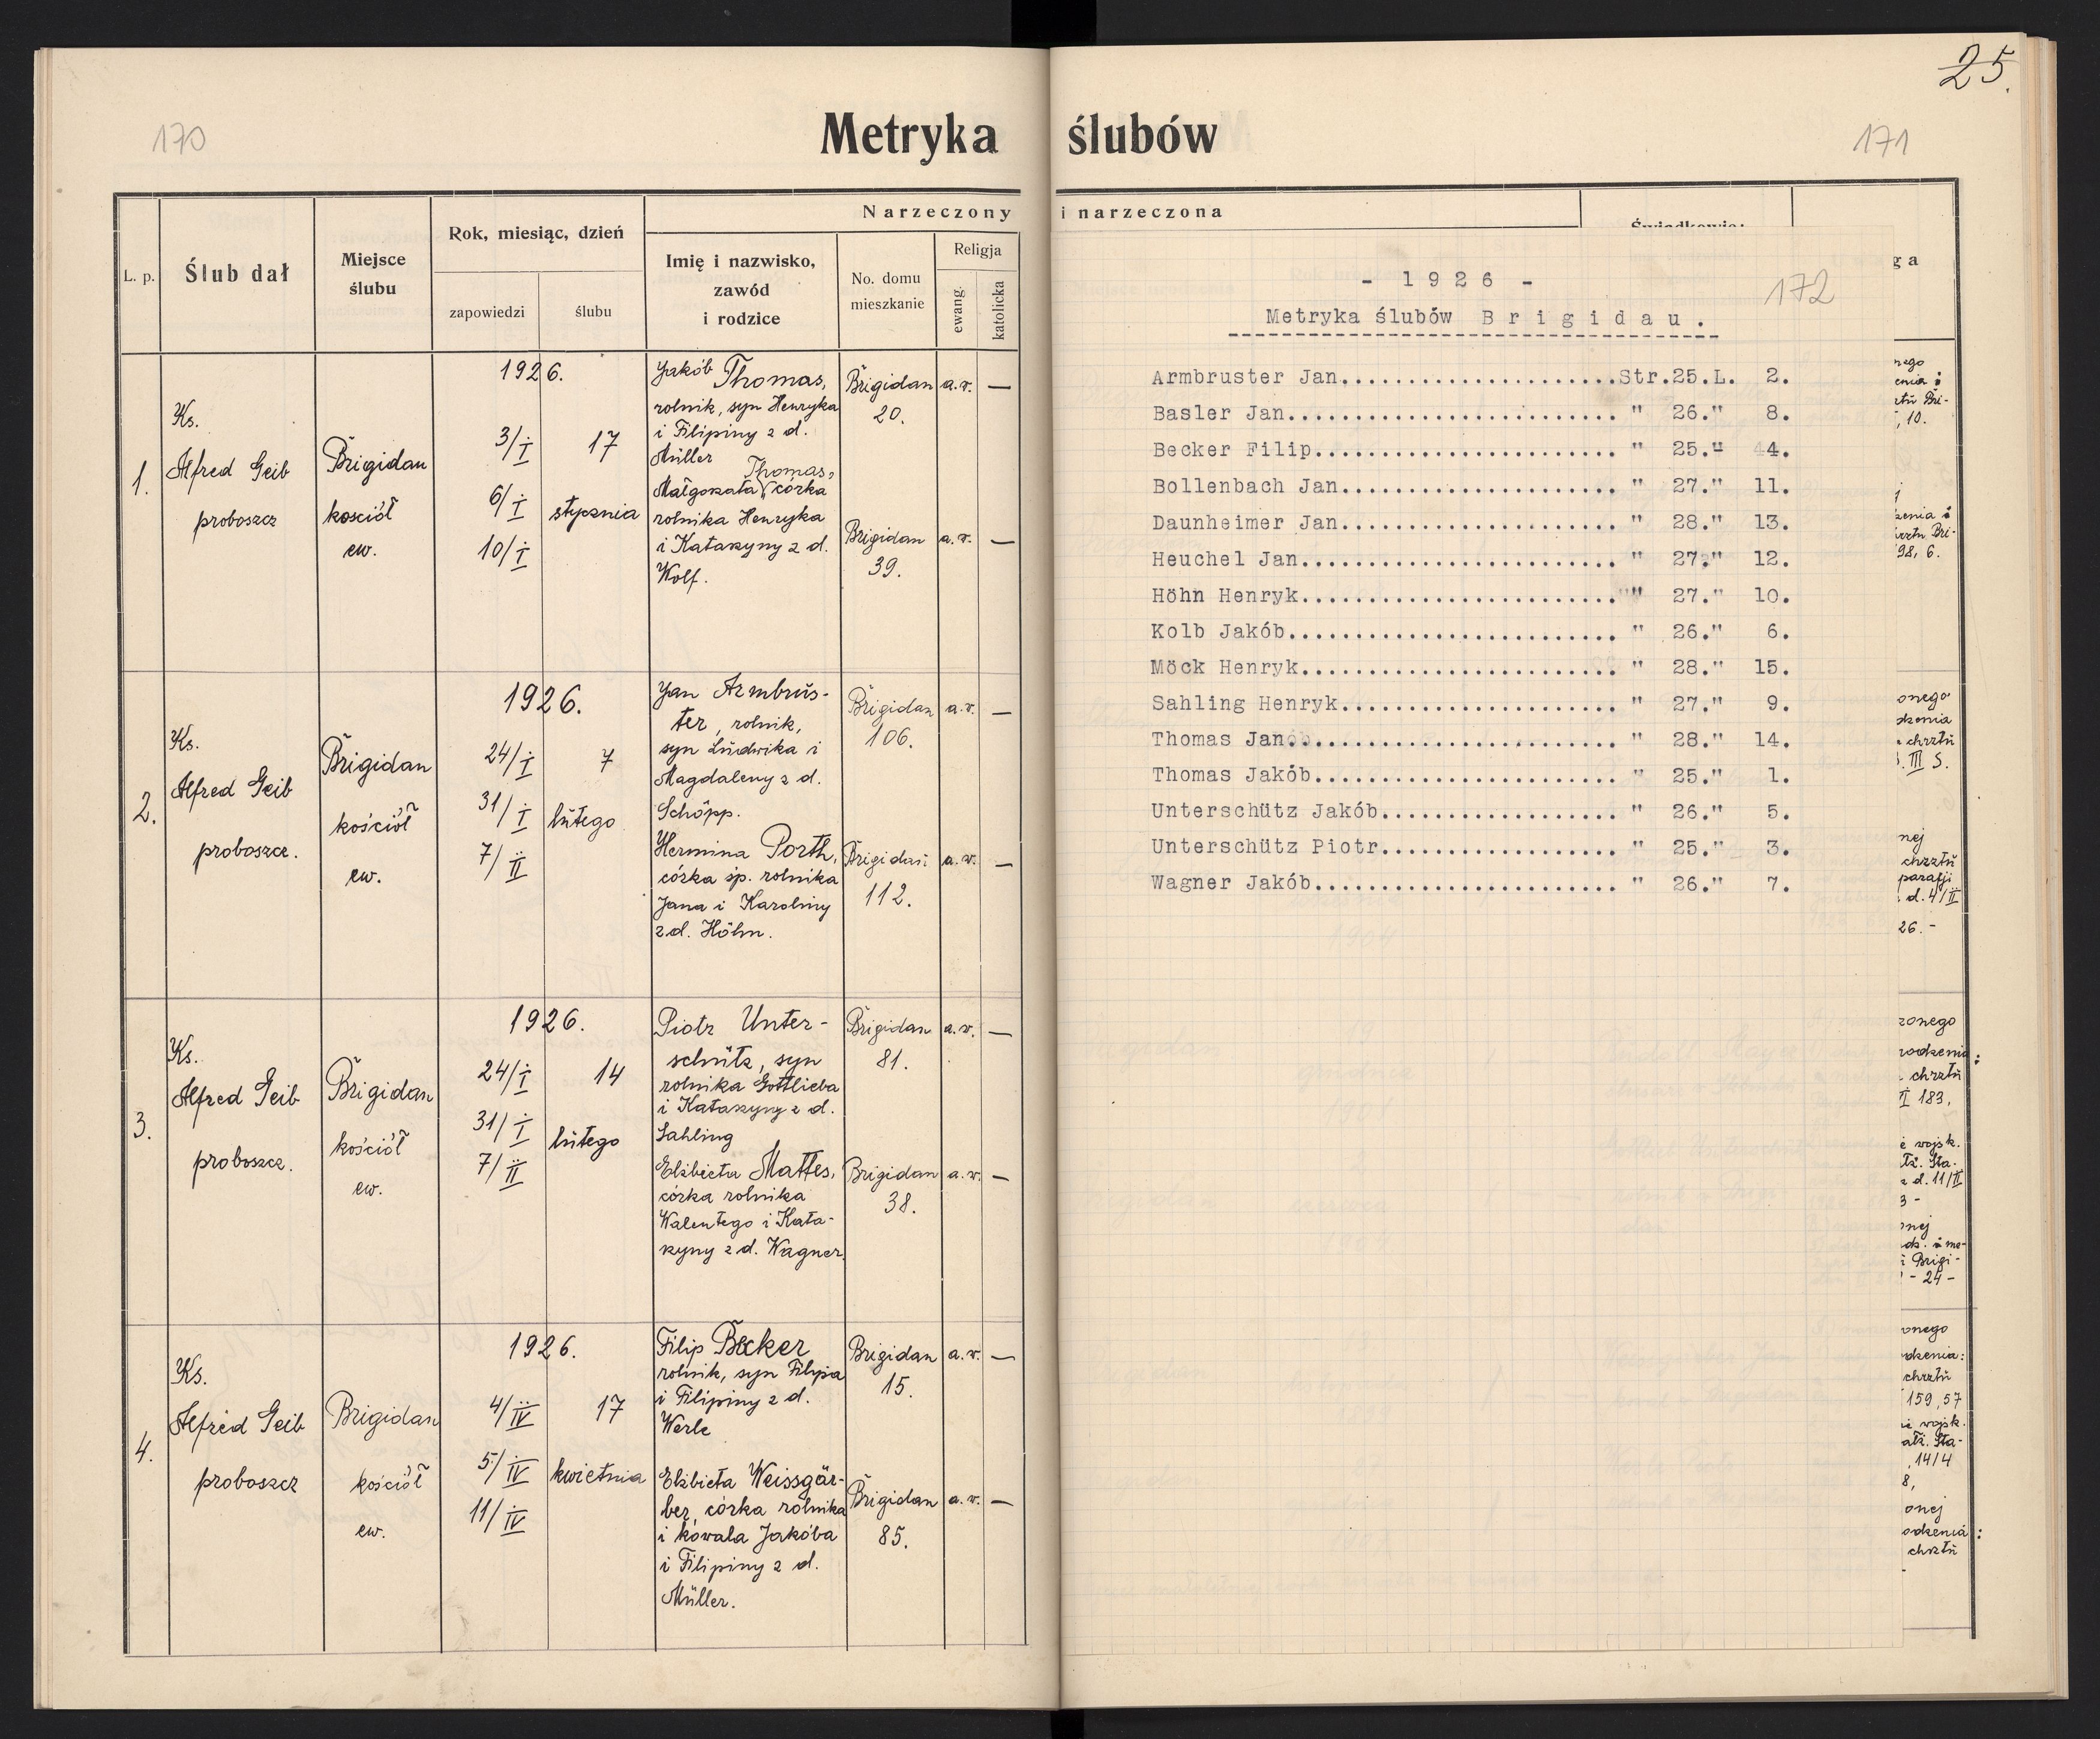 25.
170
Metryka ślubów
171
Narzeczony i narzeczona
L. p.
Ślub dał
Miejsce
ślubu
Rok, miesiąc, dzień
zapowiedzi
ślubu
Imię i nazwisko,
zawód
i rodzice
No. domu
mieszkanie
Religja
ewang.
katolicka
1.
Ks.
Alfred Geib
proboszcz
Brigidau
kosciół
ew.
1926.
3/I
6/I
10/I
17
stycznia
Jakób Thomas,
rolnik, syn Henryka
i Filipiny z d.
Müller
Thomas,
Małgorzata córka
rolnika Henryka
i Katarzyny z d.
Wolf.
Brigidau
20.
a.w. —
Brigidau
39.
a.w. —
2.
Ks.
Alfred Geib
proboszcz.
Brigidau
kościół
ew.
1926.
24/I
31/I
7/II
7
lutego
Jan Armbrus-
ter, rolnik,
syn Ludwika i
Magdaleny z d.
Schöpp.
Hermina Porth,
córka śp. rolnika
Jana i Karoliny
z d. Höhn.
Brigidau
106.
a.w. —
Brigidau
112.
a.w. —
3.
Ks.
Alfred Geib
proboszcz.
Brigidau
kościół
ew.
1926.
24/I
31/I
7/II
14
lutego
Piotr Unter-
schütz, syn
rolnika Gottlieba
i Katarzyny z d.
Sahling
Elżbieta Mattes,
córka rolnika
Walentego i Kata-
rzyny z d. Wagner.
Brigidau
81.
a.w. —
Brigidau
38.
a.w. —
4.
Ks.
Alfred Geib
proboszcz
Brigidau
kościół
ew.
1926.
4/IV
5/IV
11/IV
17
kwietnia
Filip Becker
rolnik, syn Filipa
i Filipiny z d.
Werle
Elżbieta Weissgär-
ber, córka rolnika
i kowala Jakóba
i Filipiny z d.
Müller.
Brigidau
15.
a.w. —
Brigidau
85.
a.w. —
- 1926 -
172
Metryka ślubów Brigidau.
Armbruster Jan.....................Str.25.L. 2.
Basler Jan......................... " 26." 8.
Becker Filip....................... " 25." 4.
Bollenbach Jan..................... " 27." 11.
Daunheimer Jan..................... " 28." 13.
Heuchel Jan........................ " 27." 12.
Höhn Henryk........................ " 27." 10.
Kolb Jakób......................... " 26." 6.
Möck Henryk........................ " 28." 15.
Sahling Henryk..................... " 27." 9.
Thomas Jan......................... " 28." 14.
Thomas Jakób....................... " 25." 1.
Unterschütz Jakób.................. " 26." 5.
Unterschütz Piotr.................. " 25." 3.
Wagner Jakób....................... " 26." 7.